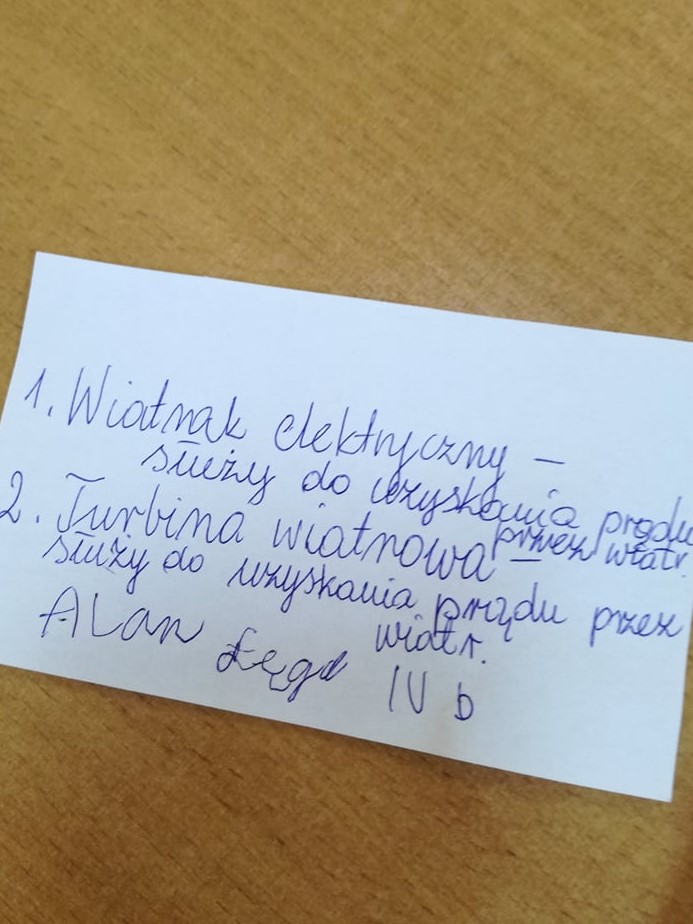 1. Wiatrak elektryczny –
służy do uzyskania prądu
przez wiatr.
2. Turbina wiatrowa –
służy do uzyskania prądu przez
wiatr.
Alan Łęga IV b